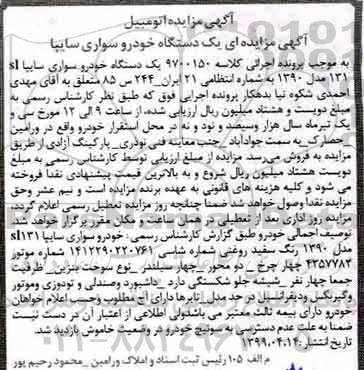 آگهی مزایده اتومبیل
آگهی مزایده ای یک دستگاه خودرو سواری سایپا
به موجب پرونده اجرائی کلاسه ۹۷۰۰۱۵۰ یک دستگاه خودرو سواری سایپا sl
۱۳۱ مدل ۱۳۹۰ به شماره انتظامی ۲۱ ایران_۲۴۴ س ۸۵ متعلق به آقای مهدی
احمدی شکوه نیا بدهکار پرونده اجرایی فوق که طبق نظر کارشناس رسمی به
مبلغ دویست و هشتاد میلیون ریال ارزیابی شده، از ساعت ۹ الی ۱۲ مورخ سی و
یک تیرماه سال هزار وسیصد و نود و نه در محل استقرار خودرو واقع در ورامین
_حصارک_به سمت جوادآباد_جنب معاینه فنی نوذری_ پارکینگ آزادی از طریق
مزایده به فروش می‌رسد. مزایده از مبلغ ارزیابی توسط کارشناس رسمی به مبلغ
دویست هشتاد میلیون ریال شروع و به بالاترین قیمت پیشنهادی نقدا فروخته
می شود و کلیه هزینه های قانونی به عهده برنده مزایده است و نیم عشر وحق
مزایده نقدا وصول خواهد شد ضمنا چنانچه روز مزایده تعطیل رسمی اعلام گردد،
مزایده روز اداری بعد از تعطیلی در همان ساعت و مکان مقرر برگزار خواهد شد.
توصیف اجمالی خودرو طبق گزارش کارشناس رسمی : خودرو سواری سایپا sl۱۳۱
مدل ۱۳۹۰ رنگ سفید روغنی شماره شاسی ۱۴۱۲۲۹۰۲۲۰۷۶۱ شماره موتور
۴۳۵۷۷۸۳ چهار چرخ _دو محور_چهار سیلندر _نوع سوخت بنزین_ ظرفیت
جمعا چهار نفر _شیشه جلو شکستگی دارد _داشبورد وصندلی و تودوزی وموتور
وگیربکس ودیفرانسیل در حد مدل_تایرها دارای آج مطلوب وحسب اعلام خواهان
خودرو دارای بیمه ثالث معتبر می باشدولی اطلاعی از اعتبار آن در دست نیست
ضمنا به علت عدم دسترسی به سوئیچ خودرو در وضعیت خاموش بازدید شد.
تاریخ انتشار :۱۳۹۹.۰۴.۱۴
م الف ۱۰۵ رئیس ثبت اسناد و املاک ورامین _محمود رحیم پور